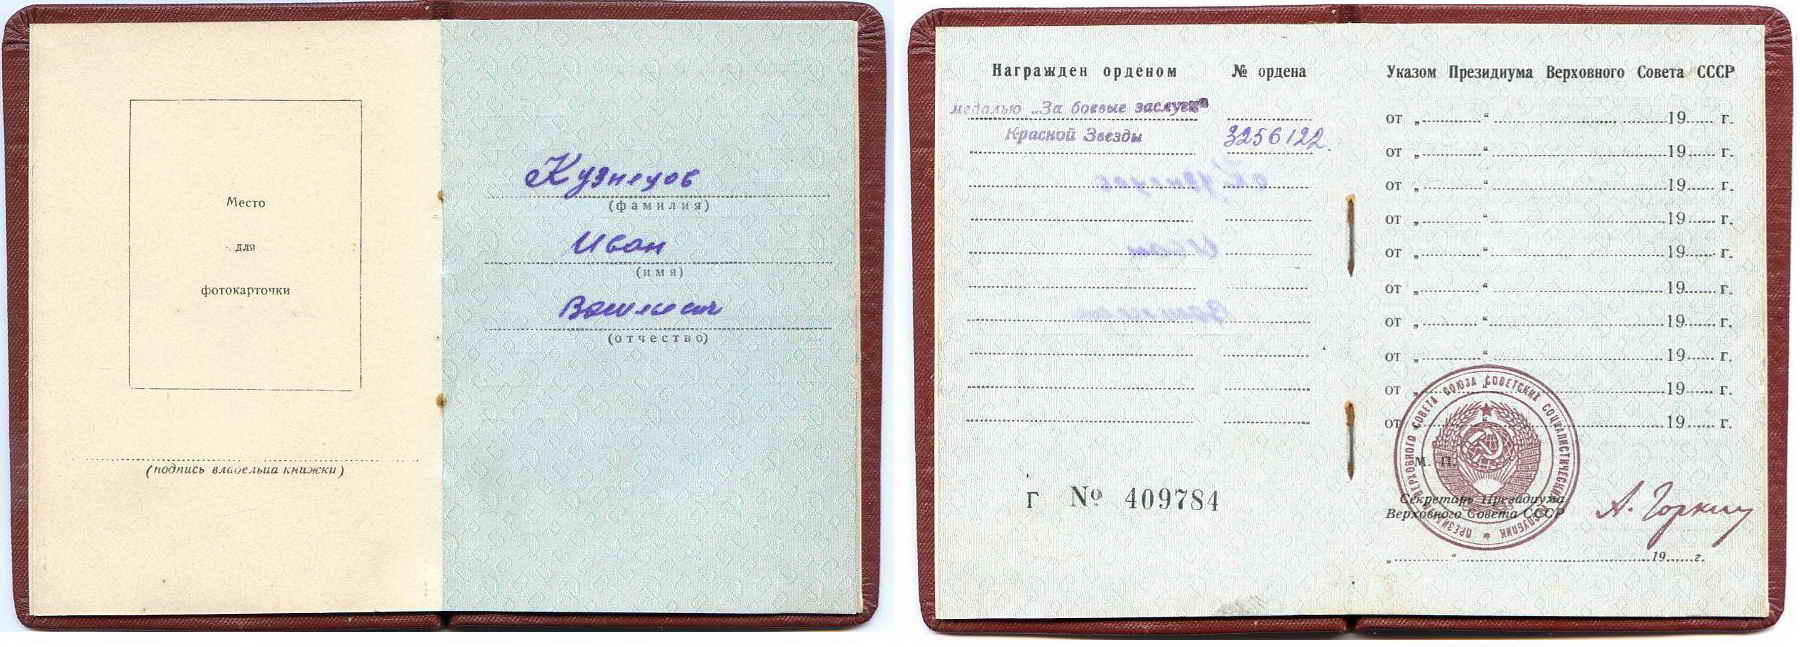 Место
для
фотокарточки
(подпись владельца книжки)
Кузнецов
(фамилия)
Иван
(имя)
(отчество)
Награжден орденом № ордена
медалью „За боевые заслуги“
Красной Звезды 3256122.
Г № 409784
Указом Президиума Верховного Совета СССР
от „ “ 19 г.
от „ “ 19 г.
от „ “ 19 г.
от „ “ 19 г.
от „ “ 19 г.
от „ “ 19 г.
от „ “ 19 г.
от „ “ 19 г.
от „ “ 19 г.
от „ “ 19 г.
М. П.
ПРЕЗИДИУМ ВЕРХОВНОГО СОВЕТА СОЮЗА СОВЕТСКИХ СОЦИАЛИСТИЧЕСКИХ РЕСПУБЛИК
Секретарь Президиума
Верховного Совета СССР
А. Горкин
„ “ 19 г.